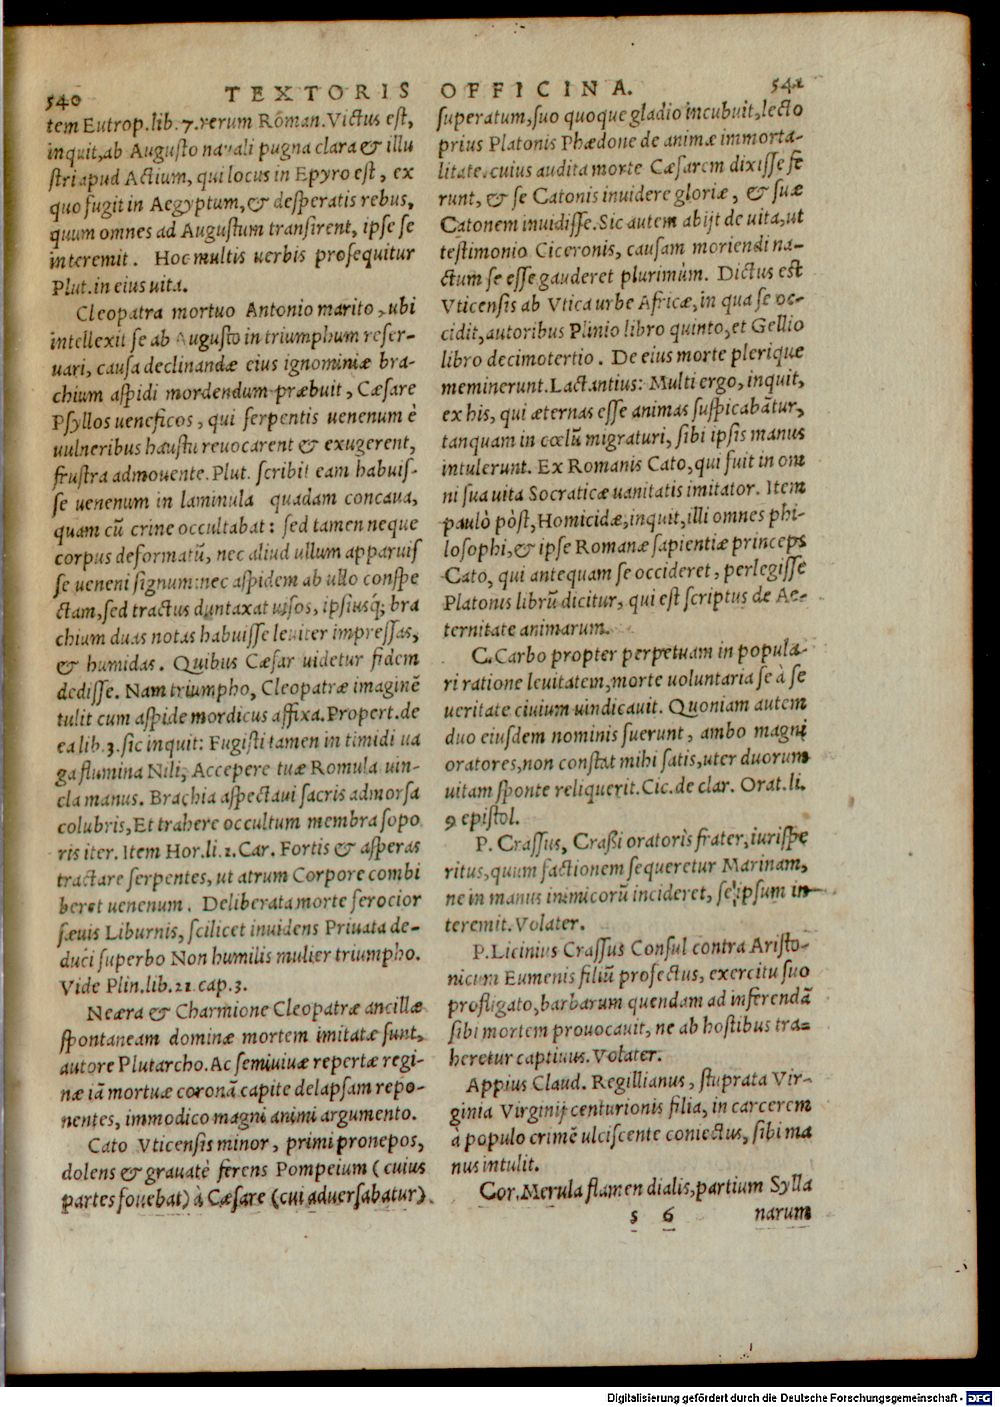 540
TEXTORIS OFFICINA.
541
tem Eutrop.lib.7.rerum Rõman.Victus est,
inquit,ab Augusto nauali pugna clara & illu
stri apud Actium, qui locus in Epyro est, ex
quo fugit in Aegyptum,& desperatis rebus,
quum omnes ad Augustum transirent, ipse se
interemit. Hoc multis uerbis prosequitur
Plut.in eius uita.
Cleopatra mortuo Antonio marito, ubi
intellexit se ab Augusto in triumphum reser-
uari, causa declinandæ eius ignominiæ bra-
chium aspidi mordendum præbuit, Cæsare
Psyllos ueneficos, qui serpentis uenenum è
uulneribus haustu reuocarent & exugerent,
frustra admouente. Plut. scribit eam habuis-
se uenenum in laminula quadam concaua,
quam cũ crine occultabat: sed tamen neque
corpus deformatũ, nec aliud ullum apparuis
se ueneni signum:nec aspidem ab ullo conspe
ctam,sed tractus duntaxat uisos, ipsiusq́; bra
chium duas notas habuisse leuiter impressas,
& humidas. Quibus Cæsar uidetur fidem
dedisse. Nam triumpho, Cleopatræ imaginẽ
tulit cum aspide mordicus affixa.Propert.de
ea lib.3.sic inquit: Fugisti tamen in timidi ua
ga flumina Nili, Accepere tuæ Romula uin-
cla manus. Brachia aspectaui sacris admorsa
colubris,Et trahere occultum membra sopo
ris iter. Item Hor.li.1.Car. Fortis & asperas
tractare serpentes, ut atrum Corpore combi
beret uenenum. Deliberata morte ferocior
sæuis Liburnis, scilicet inuidens Priuata de-
duci superbo Non humilis mulier triumpho.
Vide Plin.lib.21.cap.3.
Neæra & Charmione Cleopatræ ancillæ
spontaneam dominæ mortem imitatæ sunt,
autore Plutarcho. Ac semiuiuæ repertæ regi-
næ iã mortuæ coronã capite delapsam repo-
nentes, immodico magni animi argumento.
Cato Vticensis minor, primi pronepos,
dolens & grauatè ferens Pompeium (cuius
partes fouebat) à Cæsare (cui aduersabatur)
superatum,suo quoque gladio incubuit,lecto
prius Platonis Phædone de animæ immorta-
litate.cuius audita morte Cæsarem dixisse fe
runt, & se Catonis inuidere gloriæ, & suæ
Catonem inuidisse.Sic autem abijt de uita,ut
testimonio Ciceronis, causam moriendi na-
ctum se esse gauderet plurimùm. Dictus est
Vticensis ab Vtica urbe Africæ,in qua se oc-
cidit,autoribus Plinio libro quinto,et Gellio
libro decimotertio. De eius morte plerique
meminerunt.Lactantius: Multi ergo,inquit,
ex his, qui æternas esse animas suspicabãtur,
tanquam in cœlũ migraturi, sibi ipsis manus
intulerunt. Ex Romanis Cato,qui fuit in om
ni sua uita Socraticæ uanitatis imitator. Item
paulò pòst,Homicidæ,inquit,illi omnes phi-
losophi,& ipse Romanæ sapientiæ princeps
Cato, qui antequam se occideret, perlegisse
Platonis librũ dicitur, qui est scriptus de Ae-
ternitate animarum.
C.Carbo propter perpetuam in popula-
ri ratione leuitatem,morte uoluntaria se à se
ueritate ciuium uindicauit. Quoniam autem
duo eiusdem nominis fuerunt, ambo magni
oratores,non constat mihi satis,uter duorum
uitam sponte reliquerit. Cic.de clar. Orat.li.
9 epistol.
P. Crassus, Crassi oratoris frater, iurispe
ritus,quum factionem sequeretur Marinam,
ne in manus inimicorũ incideret, se ipsum in
teremit. Volater.
P.Licinius Crassus Consul contra Aristo-
nicum Eumenis filiũ profectus, exercitu suo
profligato,barbarum quendam ad inferendã
sibi mortem prouocauit, ne ab hostibus tra-
heretur captiuus. Volater.
Appius Claud. Regillianus, stuprata Vir-
ginia Virginij centurionis filia, in carcerem
à populo crimẽ ulciscente coniectus, sibi ma
nus intulit.
Cor.Merula flamen dialis,partium Sylla
s 6 narum
Digitalisierung gefördert durch die Deutsche Forschungsgemeinschaft - DFG